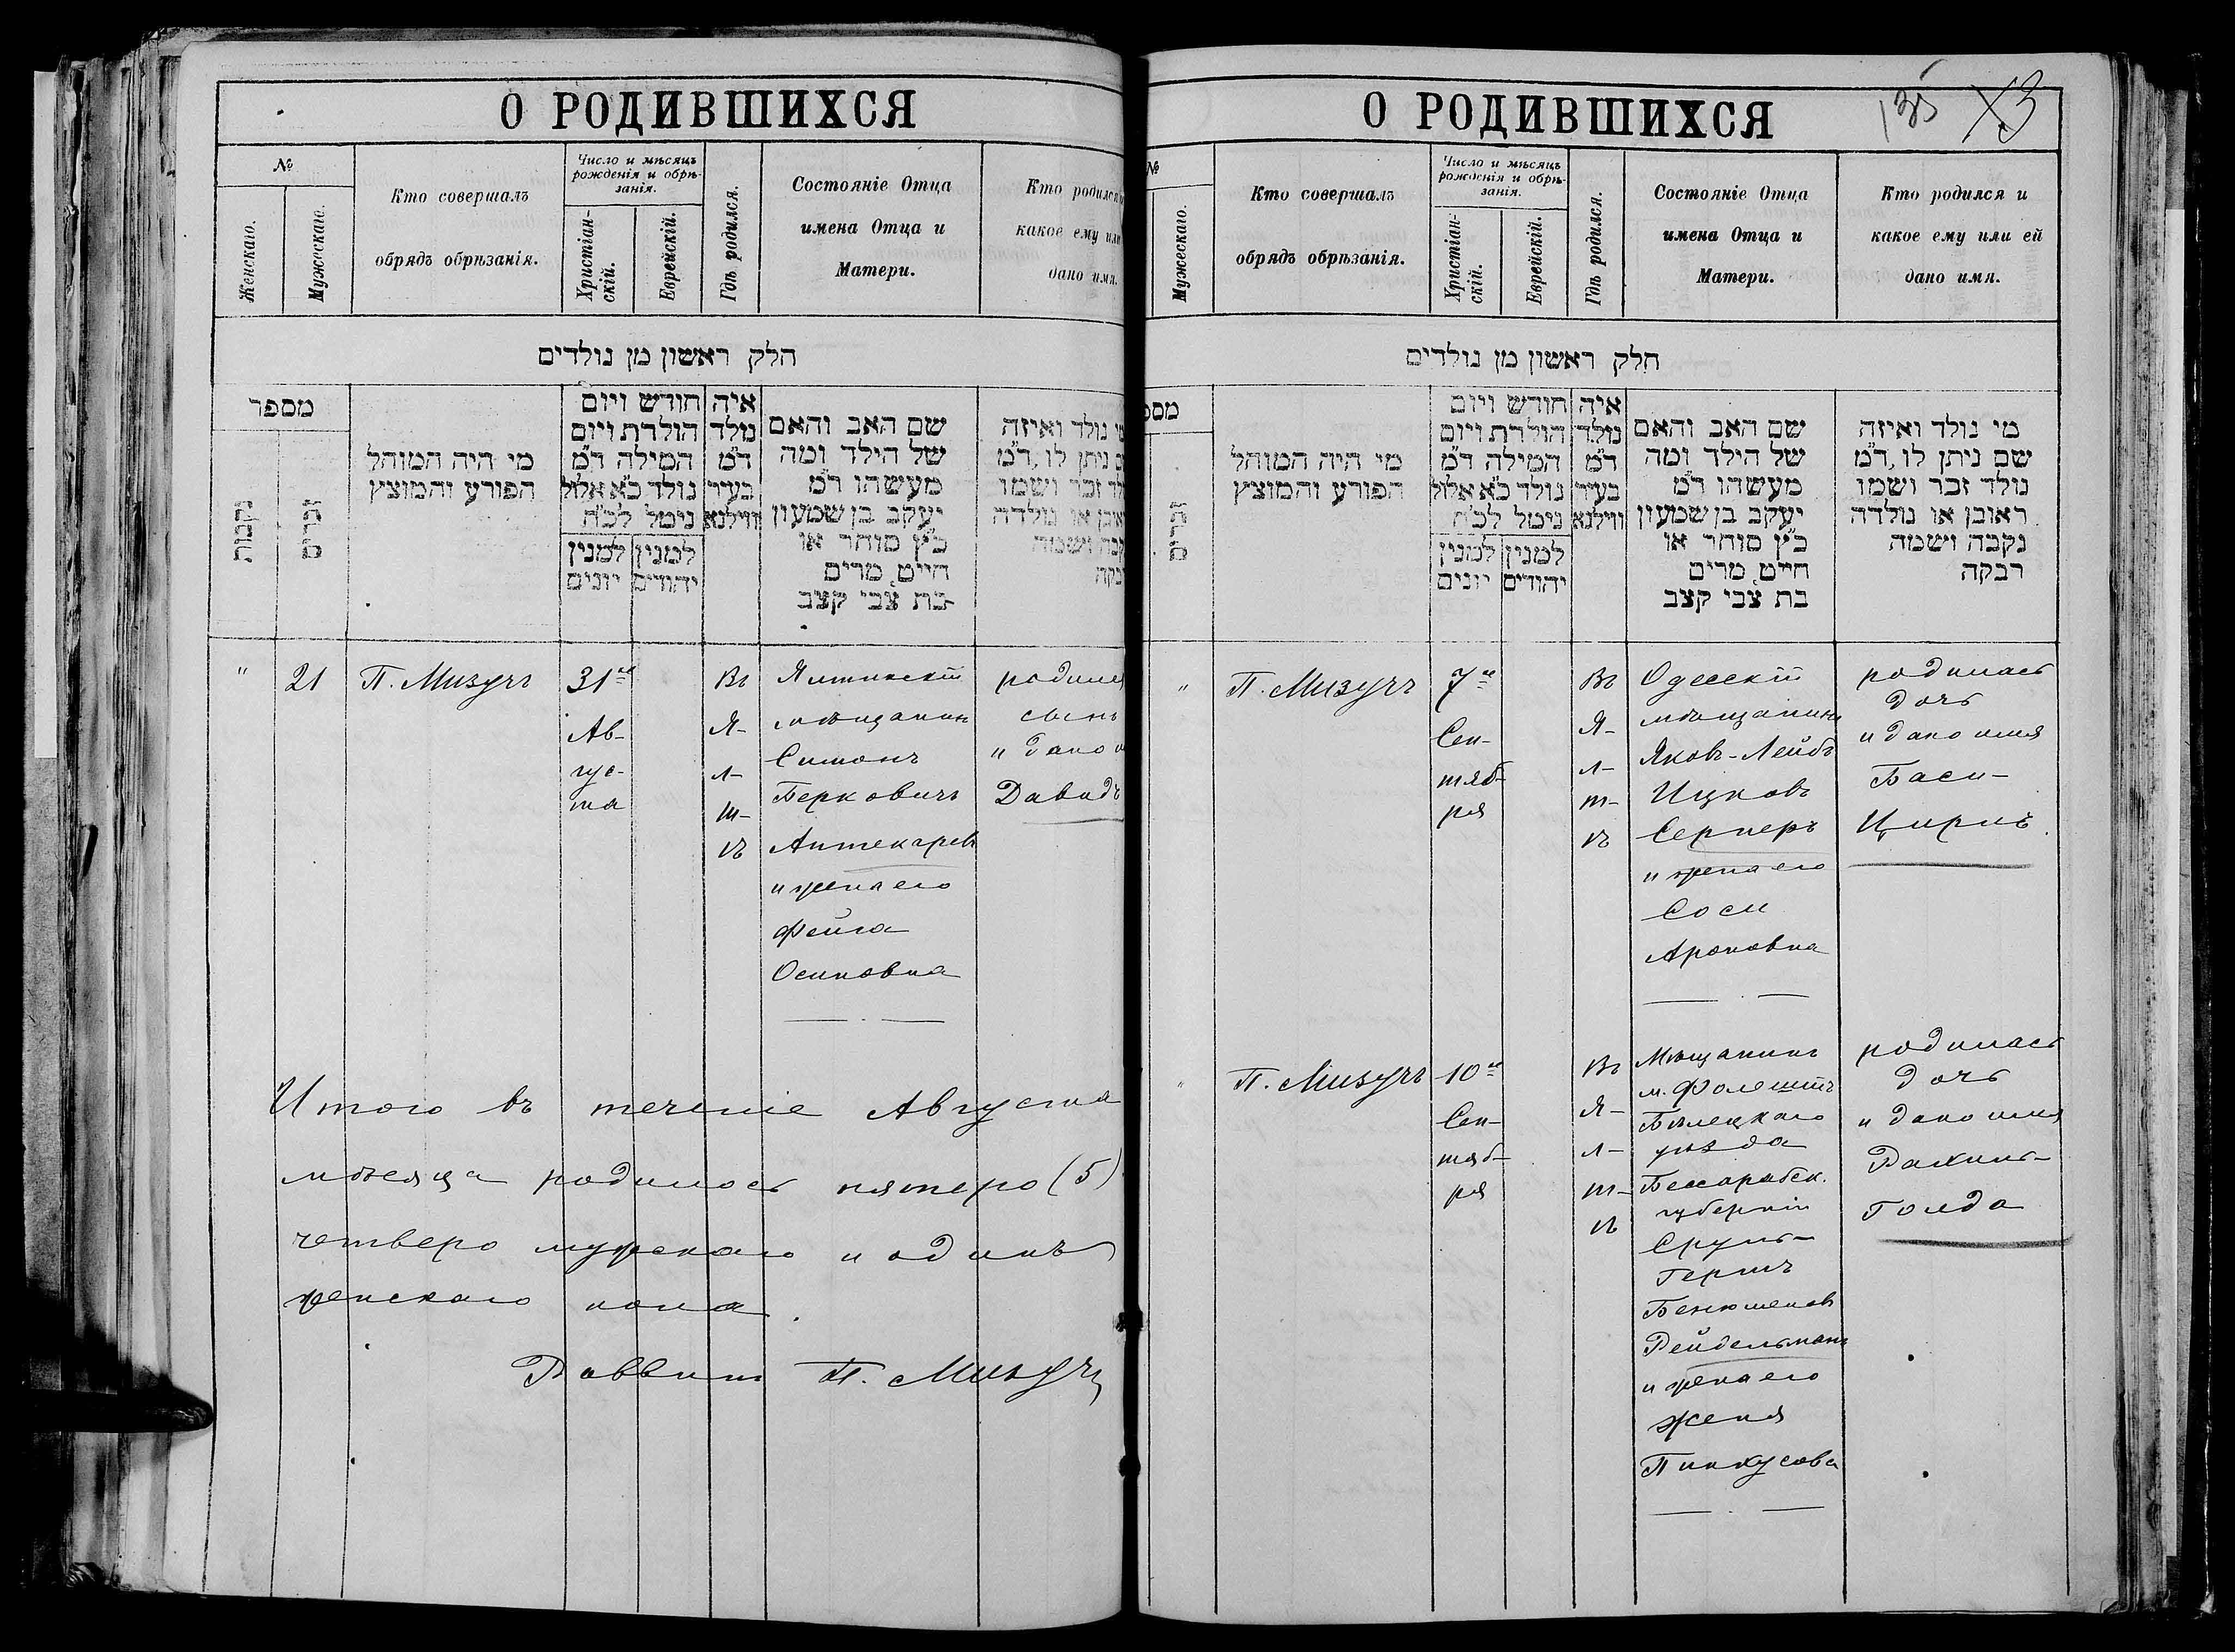 О РОДИВШИХСЯ
№
Женскаго.
Мужескаго.
Кто совершалъ
обрядъ обрѣзанія.
Число и мѣсяцъ
рожденія и обрѣ-
занія.
Христіан-
скій.
Еврейскій.
Гдѣ родился.
Состояніе Отца
имена Отца и
Матери.
Кто родился
какое ему или
дано имя.
חלק ראשון מן נולדים
מספר
נקבות
זכרים
מי היה המוהל
הפורע והמוצץ
חודש ויום
הולדת ויום
המילה ד״מ
נולד כ״א אלול
נימל לכ״ח
למנין
יהודים
למנין
יונים
איה
נולד
ד״מ
בעיר
ווילנא
שם האב והאם
של הילד ומה
מעשהו ד״מ
יעקב בן שמעון
כ״ץ סוחר או
חייט, מרים
בת צבי קצב
נולד ואיזה
ניתן לו, ד״מ
זכר ושמו
או נולדה
ושמה
"
21
П. Мизучъ
31го
Ав-
гус-
та
Въ
Я-
л-
т-
ѣ
Ялтинскій
мѣщанинъ
Симонъ
Берковичъ
Аптекаревъ
и жена его
Фейга
Осиповна
родился
сынъ
и дано
Давидъ
Итого въ теченіе Августа
мѣсяца родилось пятеро (5)
четверо мужскаго и одинъ
женскаго пола.
Раввинъ П. Мизучъ
О РОДИВШИХСЯ
135
№
Мужескаго.
Кто совершалъ
обрядъ обрѣзанія.
Число и мѣсяцъ
рожденія и обрѣ-
занія.
Христіан-
скій.
Еврейскій.
Гдѣ родился.
Состояніе Отца
имена Отца и
Матери.
Кто родился и
какое ему или ей
дано имя.
חלק ראשון מן נולדים
זכרים
מי היה המוהל
הפורע והמוצץ
חודש ויום
הולדת ויום
המילה ד״מ
נולד כ״א אלול
נימל לכ״ח
למנין
יהודים
למנין
יונים
איה
נולד
ד״מ
בעיר
ווילנא
שם האב והאם
של הילד ומה
מעשהו ד״מ
יעקב בן שמעון
כ״ץ סוחר או
חייט, מרים
בת צבי קצב
מי נולד ואיזה
שם ניתן לו, ד״מ
נולד זכר ושמו
ראובן או נולדה
נקבה ושמה
רבקה
"
П. Мизучъ
7го
Сен-
тяб-
ря
Въ
Я-
л-
т-
ѣ
Одесскій
мѣщанинъ
Яковъ-Лейбъ
Ицковъ
Серперъ
и жена его
Соси
Ароновна
родилась
дочь
и дано имя
Баси-
Циринъ
"
П. Мизучъ
10го
Сен-
тяб-
ря
Въ
Я-
л-
т-
ѣ
Мѣщанинъ
м. Фолештъ
Бѣлецкаго
уѣзда
Бессарабск.
губерніи
Сруль-
Гершъ
Бенюменовъ
Рейдельманъ
и жена его
Женя
Пинкусова
родилась
дочь
и дано имя
Рахиль-
Голда